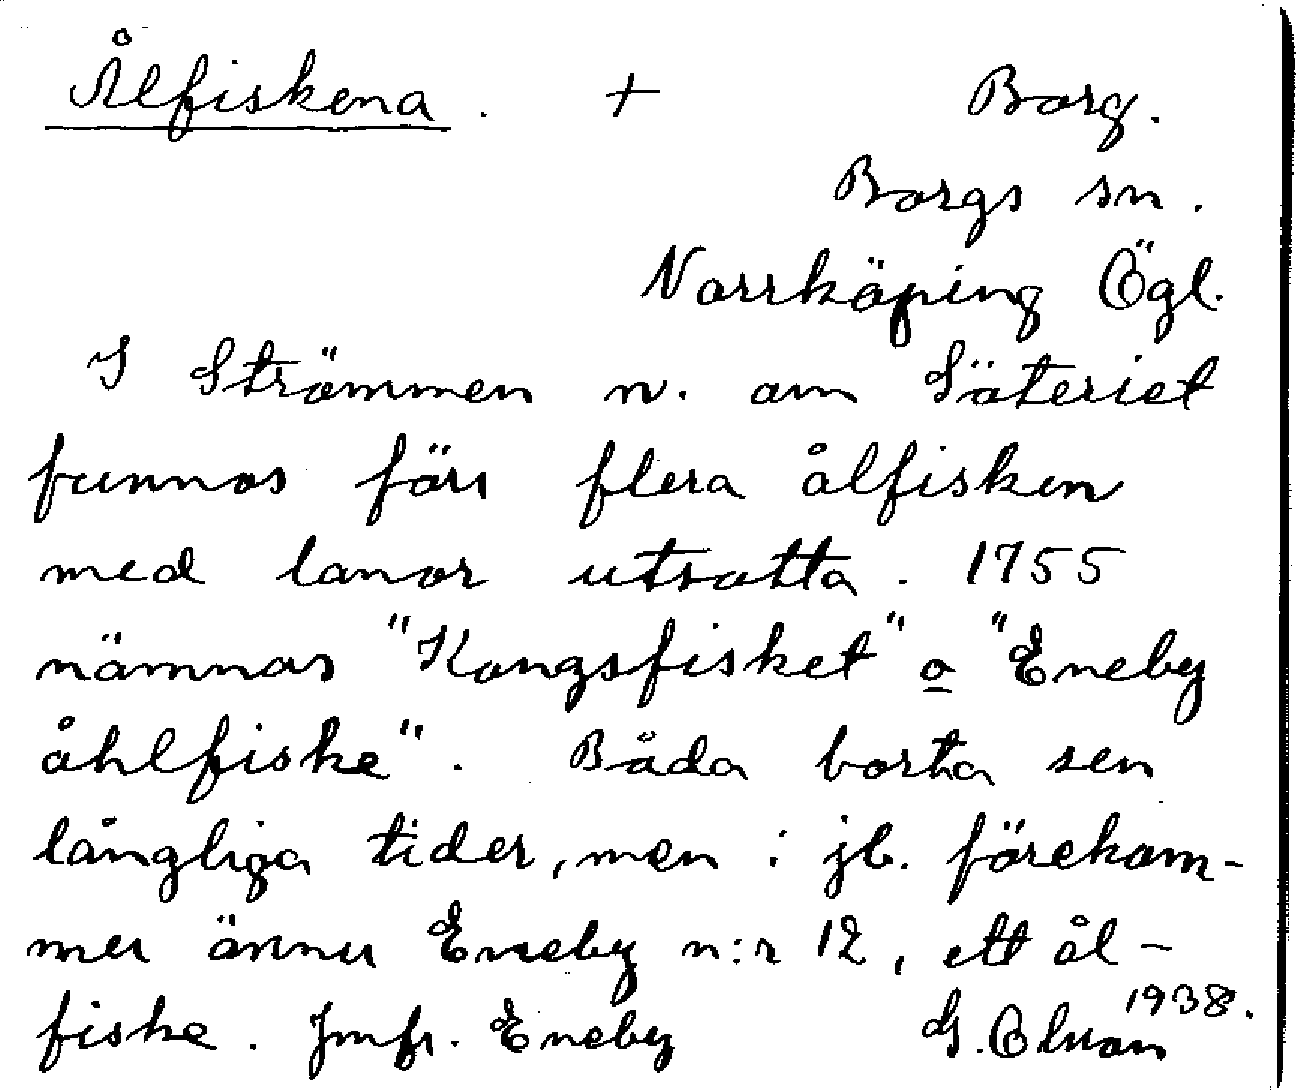 Ålfiskena. + Borg.
Borgs sn.
Norrköping Ögl.
I Strömmen n. om Säteriet
funnos förr flera ålfisken
med lanor utsatta. 1755
nämnas "Kongsfisket" o "Eneby
åhlfiske". Båda borta sen
långliga tider, men i jb. förekom-
mer ännu Eneby n:r 12, ett ål-
fiske. Jmfr. Eneby G. 1938.